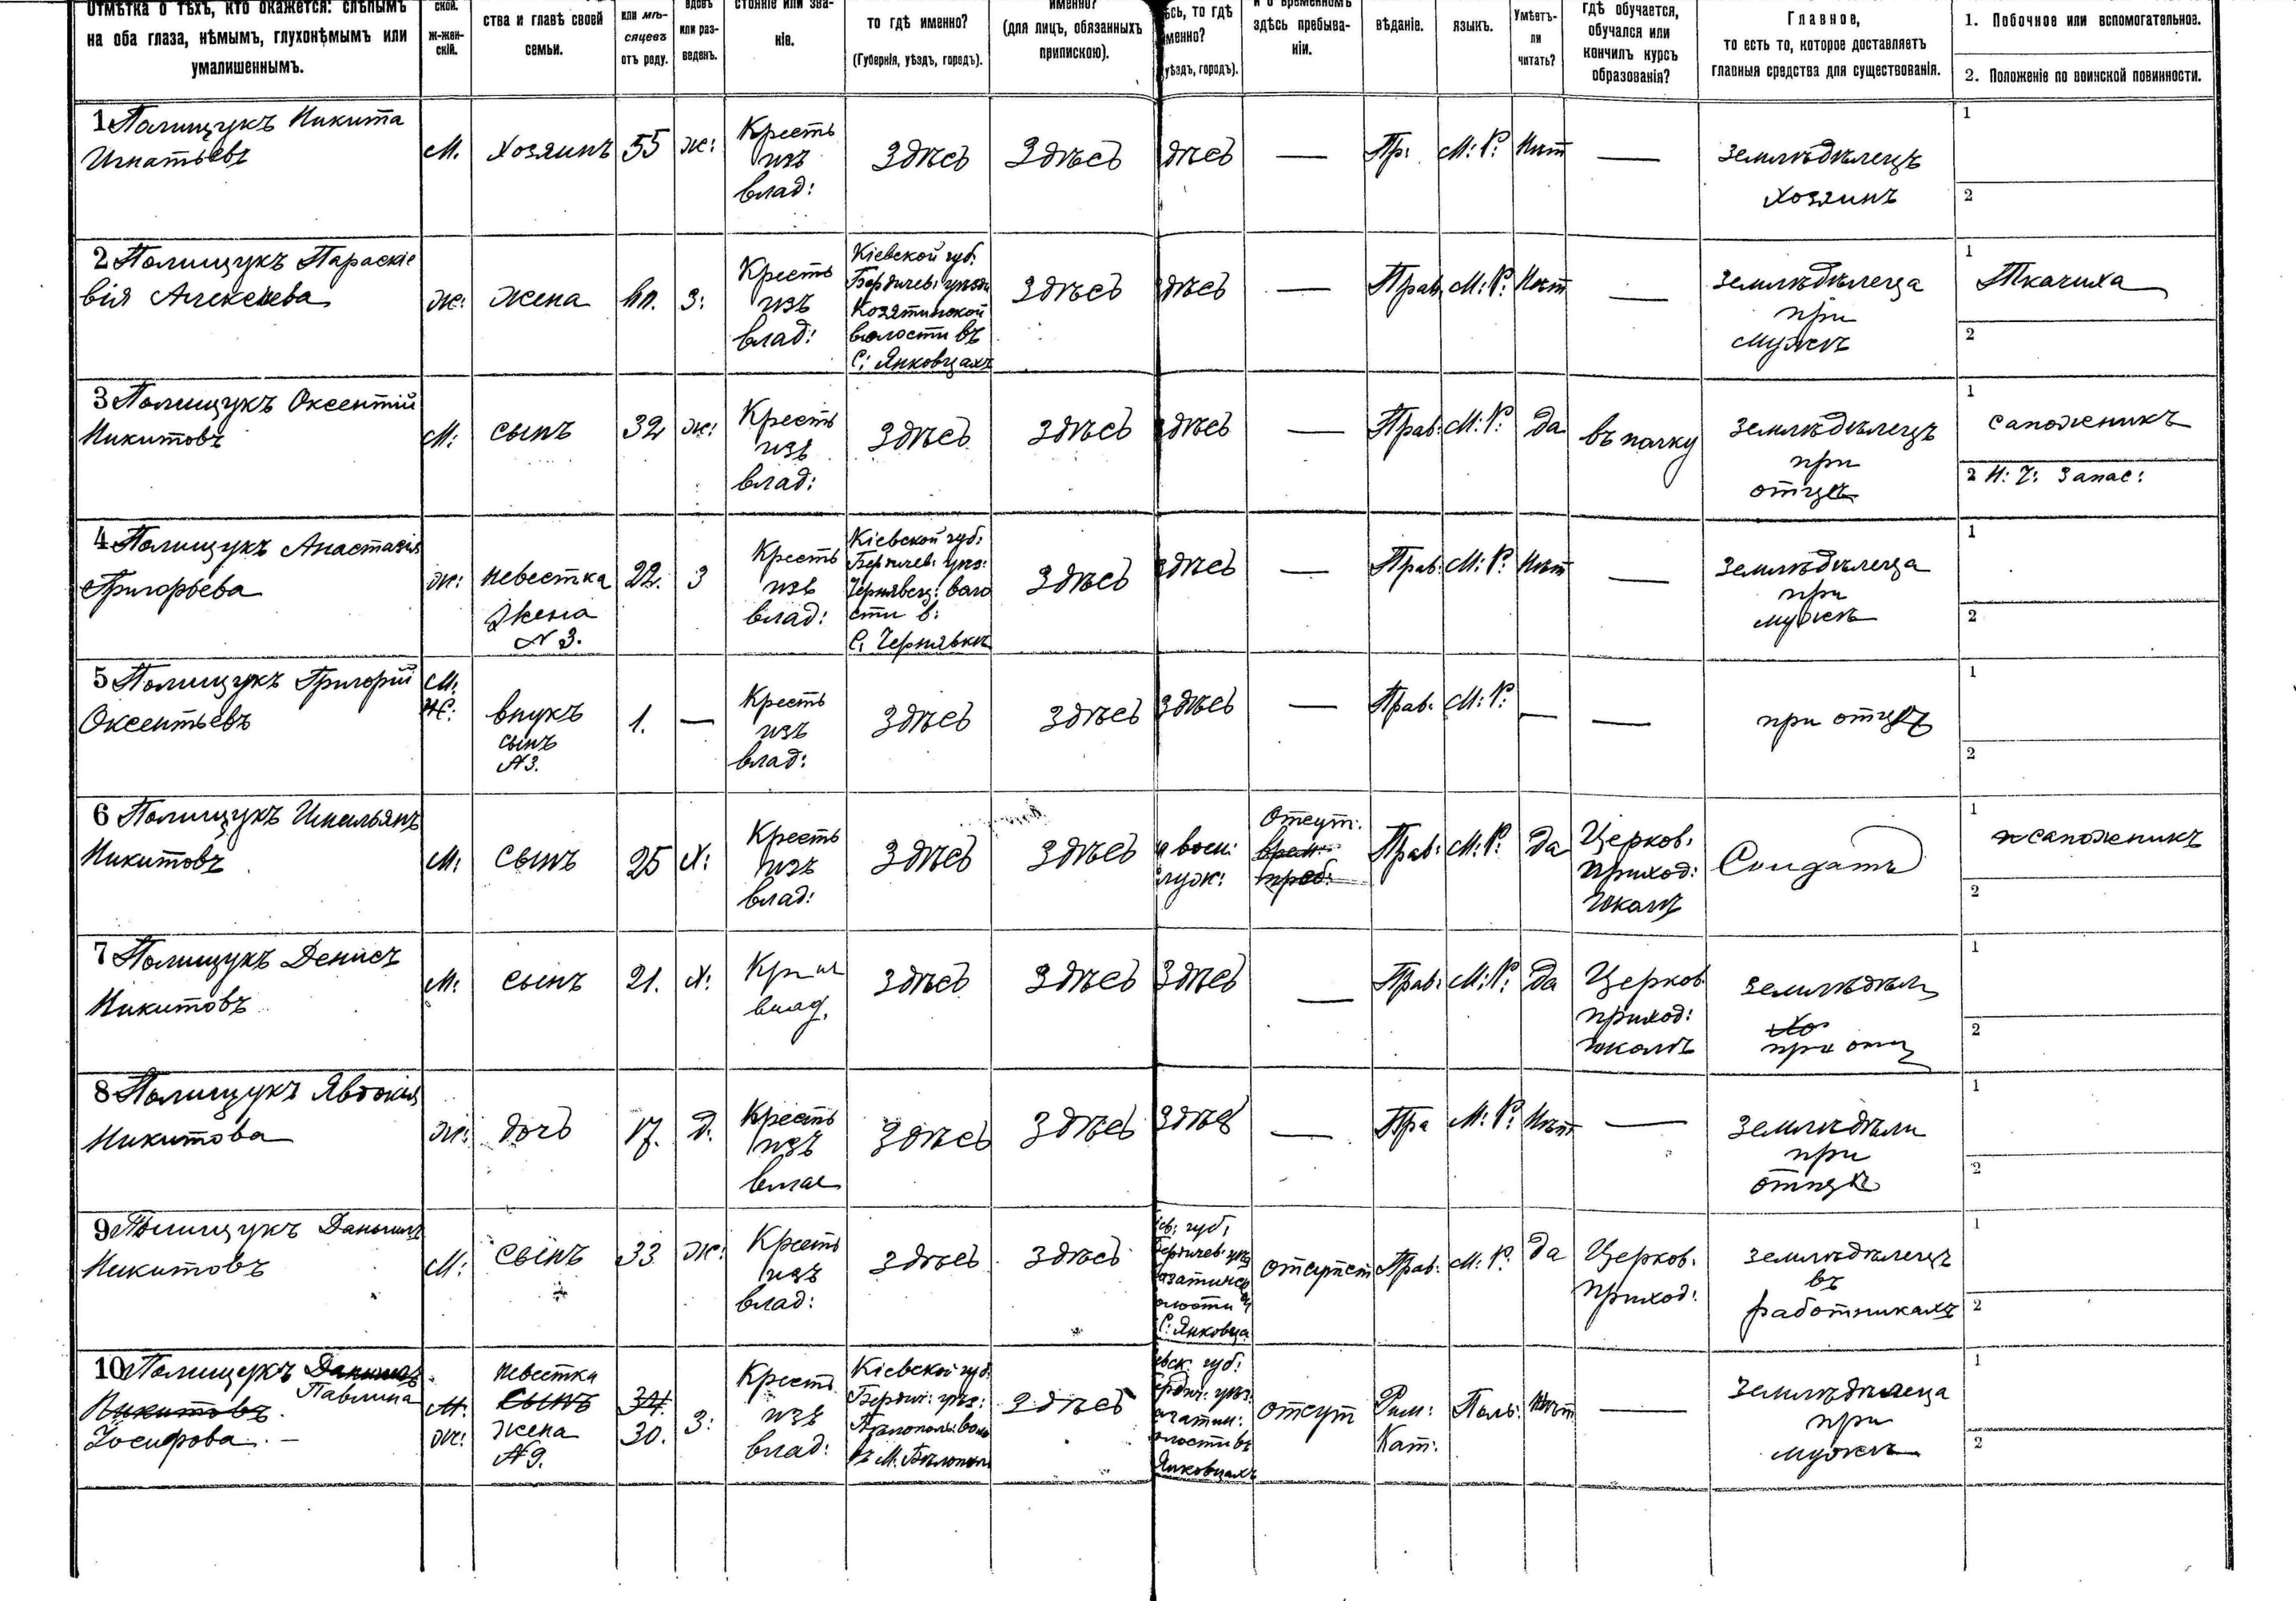 Отмѣтка о тѣхъ, кто окажется: слѣпымъ
на оба глаза, нѣмымъ, глухонѣмымъ или
умалишеннымъ.
ской.
ж-жен-
скій.
ства и главѣ своей
семьи.
или мѣ-
сяцевъ
отъ роду.
вдовъ
или раз-
веденъ.
стояніе или зва-
ніе.
то гдѣ именно?
(Губернія, уѣздъ, городъ).
именно?
(для лицъ, обязанныхъ
припискою).
сь, то гдѣ
менно?
уѣздъ, городъ).
и о временномъ
здѣсь пребыва-
ніи.
вѣданіе.
языкъ.
Умѣетъ-
ли
читать?
гдѣ обучается,
обучался или
кончилъ курсъ
образованія?
Главное,
то есть то, которое доставляетъ
главныя средства для существованія.
1. Побочное или вспомогательное.
2. Положеніе по воинской повинности.
1 Полищукъ Никита
Игнатьевъ
М.
хозяинъ
55
ж:
Кресть
изъ
влад:
Здѣсь
Здѣсь
дѣсь
—
Пр:
М: Р:
Нѣт
—
Землѣдѣлецъ
хозяинъ
1
2
2 Полищукъ Параскіе
вія Алексѣева
ж:
жена
3:
Кресть
изъ
влад:
Кіевской губ:
Бердичев: уѣзда
Козятинской
волости въ
С: Янковцахъ
Здѣсь
здѣсь
—
Прав.
М: Р:
Нѣт
—
Землѣдѣлеца
при
мужѣ
1
Ткачиха
2
3 Полищукъ Оксентій
Никитовъ
М:
сынъ
32
ж:
Кресть
изъ
влад:
Здѣсь
Здѣсь
здѣсь
—
Прав:
М: Р:
да
въ полку
Землѣдѣлецъ
при
отцѣ
1
сапожникъ
2 Н: Ч: Запас:
4 Полищукъ Анастасія
Григорьева
ж:
невестка
жена
№ 3.
22.
3
Кресть
изъ
влад:
Кіевской губ:
Бердичев: уѣз:
Чернявец: воло
сти в:
С: Чернявкѣ
Здѣсь
здѣсь
—
Прав:
М: Р:
Нѣт
—
Землѣдѣлеца
при
мужѣ
1
2
5 Полищукъ Григорій
Оксентьевъ
М:
внукъ
сынъ
№3.
1.
—
Кресть
изъ
влад:
Здѣсь
Здѣсь
Здѣсь
—
Прав.
М: Р:
—
—
при отцѣ
1
2
6 Полищукъ Имельянъ
Никитовъ
М:
сынъ
25
Х:
Кресть
изъ
влад:
Здѣсь
Здѣсь
воен:
служ:
Отсут:
врем:
преб:
Прав:
М: Р:
да
Церков:
приход:
школѣ
Солдатъ
1
сапожникъ
2
7 Полищукъ Денисъ
Никитовъ
М:
сынъ
21.
Х:
Кр из
влад.
Здѣсь
Здѣсь
Здѣсь
—
Прав:
М: Р:
да
Церков.
приход:
школѣ
землѣдѣлец
Хо
при отц
1
2
8 Полищукъ Явдокія
Никитова
ж:
дочь
17.
д.
Кресть
изъ
влад
Здѣсь
Здѣсь
Здѣс
—
Пра
М: Р:
Нѣт
—
Землѣдѣли
при
отцѣ
1
2
9 Полищукъ Данилъ
Никитовъ
М:
сынъ
33
ж:
Кресть
изъ
влад:
здѣсь
здѣсь
ев: губ:
Бердичев: уѣз
азатинс
олости в
С: Янковца
отсутст
Прав:
М: Р:
да
Церков.
приход:
землѣдѣлецъ
въ
работникахъ
1
2
10 Полищукъ Данилъ
Павлина
Никитовъ
Іосифова. –
М:
ж:
невестка
сынъ
жена
№ 9.
34.
30.
3:
Кресть
изъ
влад:
Кіевской губ:
Бердич: уѣз:
Бѣлополь: воло
въ М. Бѣлополь
Здѣсь
евск. губ:
ердич: уѣз:
затин:
олости въ
Янковцахъ
отсут
Рим:
Кат:
Поль:
Нѣт
—
Землѣдѣлеца
при
мужѣ
1
2